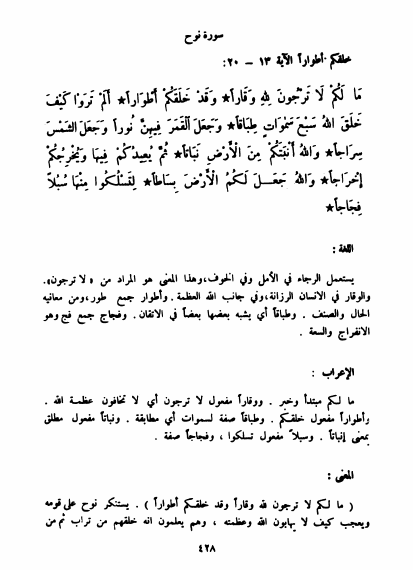 سورة نوح
خلقكم أطواراً الآية ١٣ - ٢٠ :
مَا لَكُمْ لَا تَرْجُونَ لِلهِ وَقَاراً * وَقَدْ خَلَقَكُمْ أَطْوَاراً * أَلَمْ تَرَوْا كَيْفَ
خَلَقَ اللهُ سَبْعَ سَمٰوَاتٍ طِبَاقاً * وَجَعَلَ الْقَمَرَ فِيهِنَّ نُوراً وَجَعَلَ الشَّمْسَ
سِرَاجاً * وَاللهُ أَنْبَتَكُمْ مِنَ الْأَرْضِ نَبَاتاً * ثُمَّ يُعِيدُكُمْ فِيهَا وَيُخْرِجُكُمْ
إِخْرَاجاً * وَاللهُ جَعَلَ لَكُمُ الْأَرْضَ بِسَاطاً * لِتَسْلُكُوا مِنْهَا سُبُلاً
فِجَاجاً *
اللغة :
يستعمل الرجاء في الأمل وفي الخوف ، وهذا المعنى هو المراد من « لا ترجون » .
والوقار في الانسان الرزانة ، وفي جانب الله العظمة . وأطوار جمع طور ، ومن معانيه
الحال والصنف . وطباقاً أي يشبه بعضها بعضاً في الاتقان . وفجاج جمع فج وهو
الانفراج والسعة .
الإعراب :
ما لكم مبتدأ وخبر . ووقاراً مفعول لا ترجون أي لا تخافون عظمة الله .
وأطواراً مفعول خلقكم . وطباقاً صفة لسموات أي مطابقة . ونباتاً مفعول مطلق
بمعنى إنباتاً . وسبلاً مفعول تسلكوا ، وفجاجاً صفة .
المعنى :
( ما لكم لا ترجون لله وقاراً وقد خلقكم أطواراً ) . يستنكر نوح على قومه
ويعجب كيف لا يهابون الله وعظمته ، وهم يعلمون انه خلقهم من تراب ثم من
٤٢٨